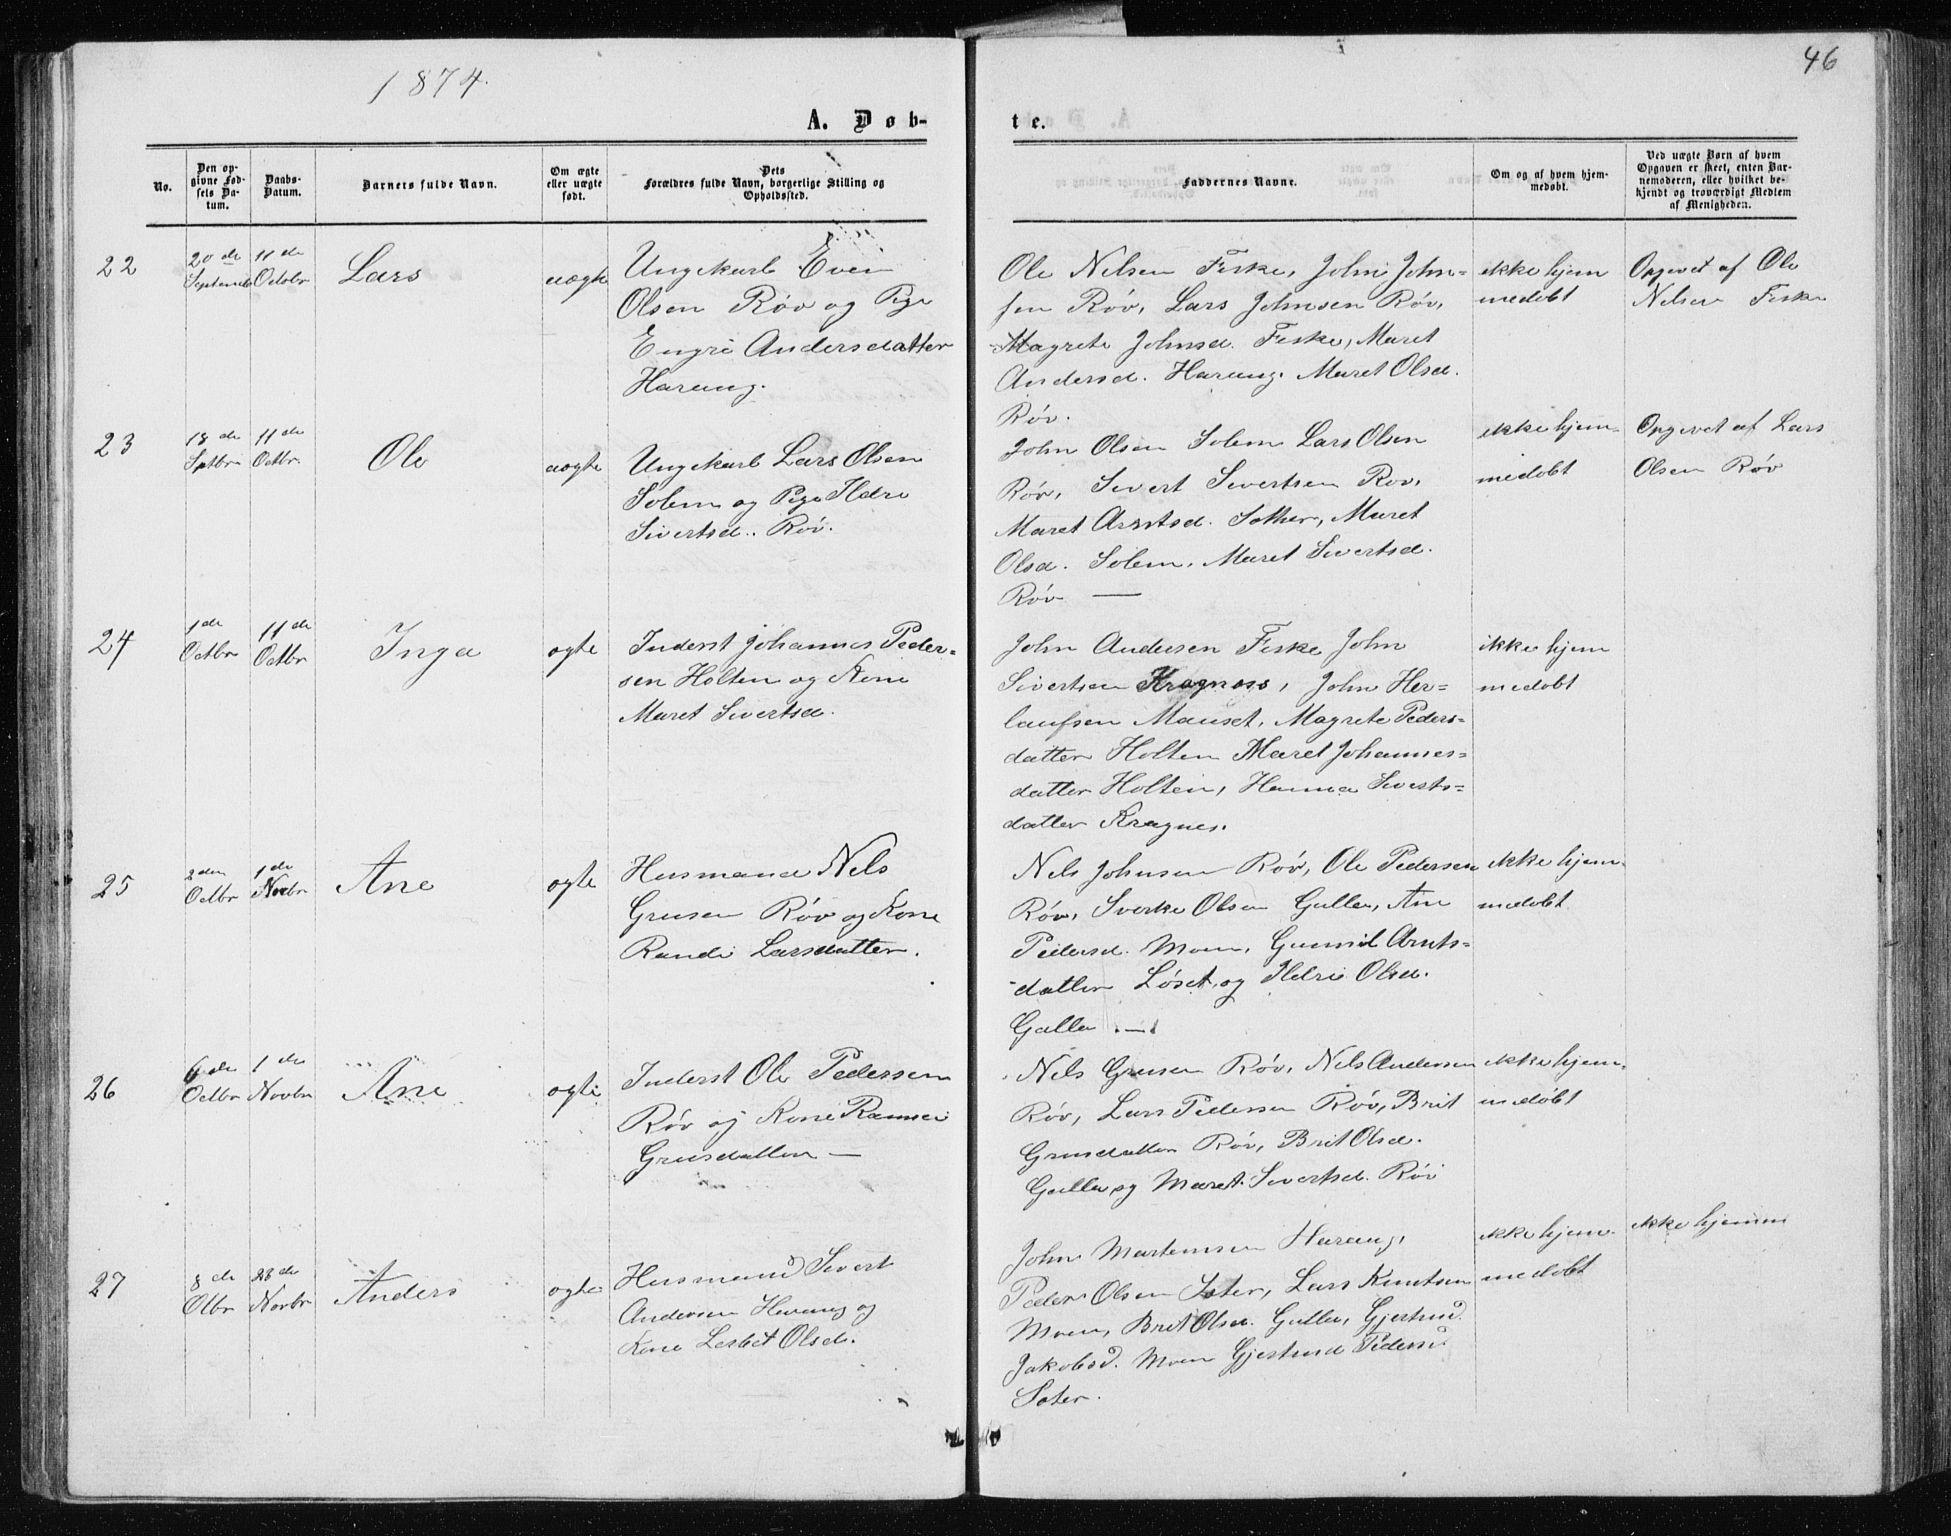 1874.
46
A. Døb-
te.
No.
Den op-
givne Fød-
sels Da-
tum.
Daabs-
Datum.
Barnets fulde Navn.
Om ægte
eller uægte
født.
Dets
Forældres fulde Navn, borgerlige Stilling og
Opholdssted.
Faddernes Navne.
Om og af hvem hjem-
medøbt.
Ved uægte Børn af hvem
Opgaven er skeet, enten Bar-
nemoderen, eller hvilket be-
kjendt og troværdigt Medlem
af Menigheden.
22
20 de
September
11 de
Octobr
Lars
uægte
Ungekarl Even
Olsen Røv og Pige
Engri Andersdatter
Harang.
Ole Nelsen Fiske, John John=
sen Røv, Lars Johnsen Røv,
Magrete Johnsd. Fiske, Maret
Andersd. Harang. Maret Olsd.
Røv.
ikke hjem
medøbt
Opgevet af Ole
Nelsen Fiske
23
18 de
Sptbr
11 de
Octbr.
Ole
uægte
Ungekarl Lars Olsen
Solem og Pige Ildri
Sivertsd. Røv.
John Olsen Solem Lars Olsen
Røv, Sivert Sivertsen Rov,
Maret Arntsd. Sother, Maret
Olsd. Solem, Maret Sivertsd.
Røv —
ikke hjem-
medøbt
Opgevet af Lars
Olsen Røv
24
1 de
Octbr
11 de
Octbr
Inga
ogte
Inderst Johannes Peder=
sen Holten og Kone
Maret Sivertsd.
John Andersen Fiske John
Sivertsen Kragness, John Her=
laufsen Mauset, Magrete Peders=
datter Holten Maret Johannes=
datter Holten, Hanna Siverts=
datter Kragnes.
ikke hjem
medøbt
25
2 den
Octbr
1 de
Novbr
Ane
ogte
Husmand Nels
Grusen Røv og Kone
Randi Larsdatter.
Nels Johnsen Røv, Ole Pedersen
Røv, Sverke Olsen Gulla, Ane
Pedersd. Moen, Gunnil Arnts=
datter Løset, og Ildri Olsd.
Gulla —
ikke hjem-
medøbt
26
6 de
Octbr
1 de
Novbr
Ane
ogte
Inderst Ole Pedersen
Røv og Kone
Grusdatter —
Nels Grusen Røv, Nels Andersen
Røv, Lars Pedersen Røv, Brit
Grusdatter Røv, Brit Olsd.
Gulla og Maret Sivertsd. Røv
ikke hjem-
medøbt
27
8 de
Otbr
23 de
Novbr
Anders
ogte
Husmand Sivert
Andersen Harang og
Kone Lesbet Olsd.
John Martensen Harang,
Peder Olsen Soter, Lars Knutsen
Moen, Brit Olsd. Gulla, Gjertrud
Jakobsd. Moen Gjertrud Pedersd
Soter.
ikke hjem-
medøbt
ikke hjemm